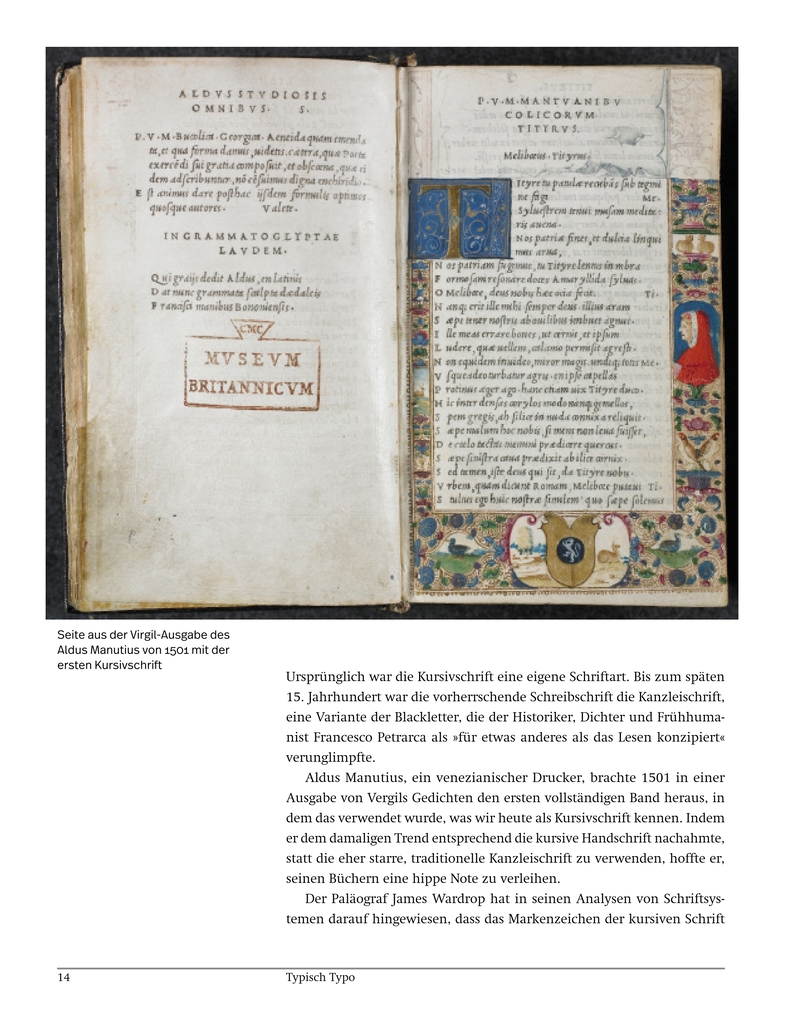 ALDVS STVDIOSIS
OMNIBVS. S.
P. V. M. Bucolica. Georgica. Aeneida quam emenda
ta, et qua forma damus, uidetis. cætera, quæ Poeta
exercēdi sui gratia composuit, et obscœna, quæ ei
dem adscribuntur, nō cēsuimus digna enchiridio.
E st animus dare posthac iisdem formulis optimos
quosque autores. Valete.
IN GRAMMATOGLYPTAE
LAVDEM.
Q ui graiis dedit Aldus, en latinis
D at nunc grammata scalpta dædaleis
F rancisci manibus Bononiensis.
CMC
MVSEVM
BRITANNICVM
P. V. M. MANTVANI BV
COLICORVM
TITYRVS.
Melibœus. Tityrus.
T
ityre tu patulæ recubās sub tegmi
ne fagi Me.
Syluestrem tenui musam medita-
ris auena.
Nos patriæ fines, et dulcia linqui
mus arua,
N os patriam fugimus, tu Tityre lentus in umbra
F ormosam resonare doces Amaryllida syluas.
O Melibœe, deus nobis hæc ocia fecit. Ti.
N anq; erit ille mihi semper deus. illius aram
S æpe tener nostris ab ouilibus imbuet agnus.
I lle meas errare boues, ut cernis, et ipsum
L udere, quæ uellem, calamo permisit agresti.
N on equidem inuideo, miror magis. undiq; totis Me.
V sque adeo turbatur agris. en ipse capellas
P rotinus æger ago. hanc etiam uix Tityre duco.
H ic inter densas corylos modo nanq; gemellos,
S pem gregis, ah silice in nuda connixa reliquit.
S æpe malum hoc nobis, si mens non læua fuisset,
D e cœlo tactas memini prædicere quercus.
S æpe sinistra caua prædixit ab ilice cornix.
S ed tamen, iste deus qui sit, da Tityre nobis.
V rbem, quam dicunt Romam, Melibœe putaui Ti.
S tultus ego huic nostræ similem, quo sæpe solemus
Seite aus der Virgil-Ausgabe des
Aldus Manutius von 1501 mit der
ersten Kursivschrift
Ursprünglich war die Kursivschrift eine eigene Schriftart. Bis zum späten
15. Jahrhundert war die vorherrschende Schreibschrift die Kanzleischrift,
eine Variante der Blackletter, die der Historiker, Dichter und Frühhuma-
nist Francesco Petrarca als »für etwas anderes als das Lesen konzipiert«
verunglimpfte.
Aldus Manutius, ein venezianischer Drucker, brachte 1501 in einer
Ausgabe von Vergils Gedichten den ersten vollständigen Band heraus, in
dem das verwendet wurde, was wir heute als Kursivschrift kennen. Indem
er dem damaligen Trend entsprechend die kursive Handschrift nachahmte,
statt die eher starre, traditionelle Kanzleischrift zu verwenden, hoffte er,
seinen Büchern eine hippe Note zu verleihen.
Der Paläograf James Wardrop hat in seinen Analysen von Schriftsys-
temen darauf hingewiesen, dass das Markenzeichen der kursiven Schrift
14 Typisch Typo